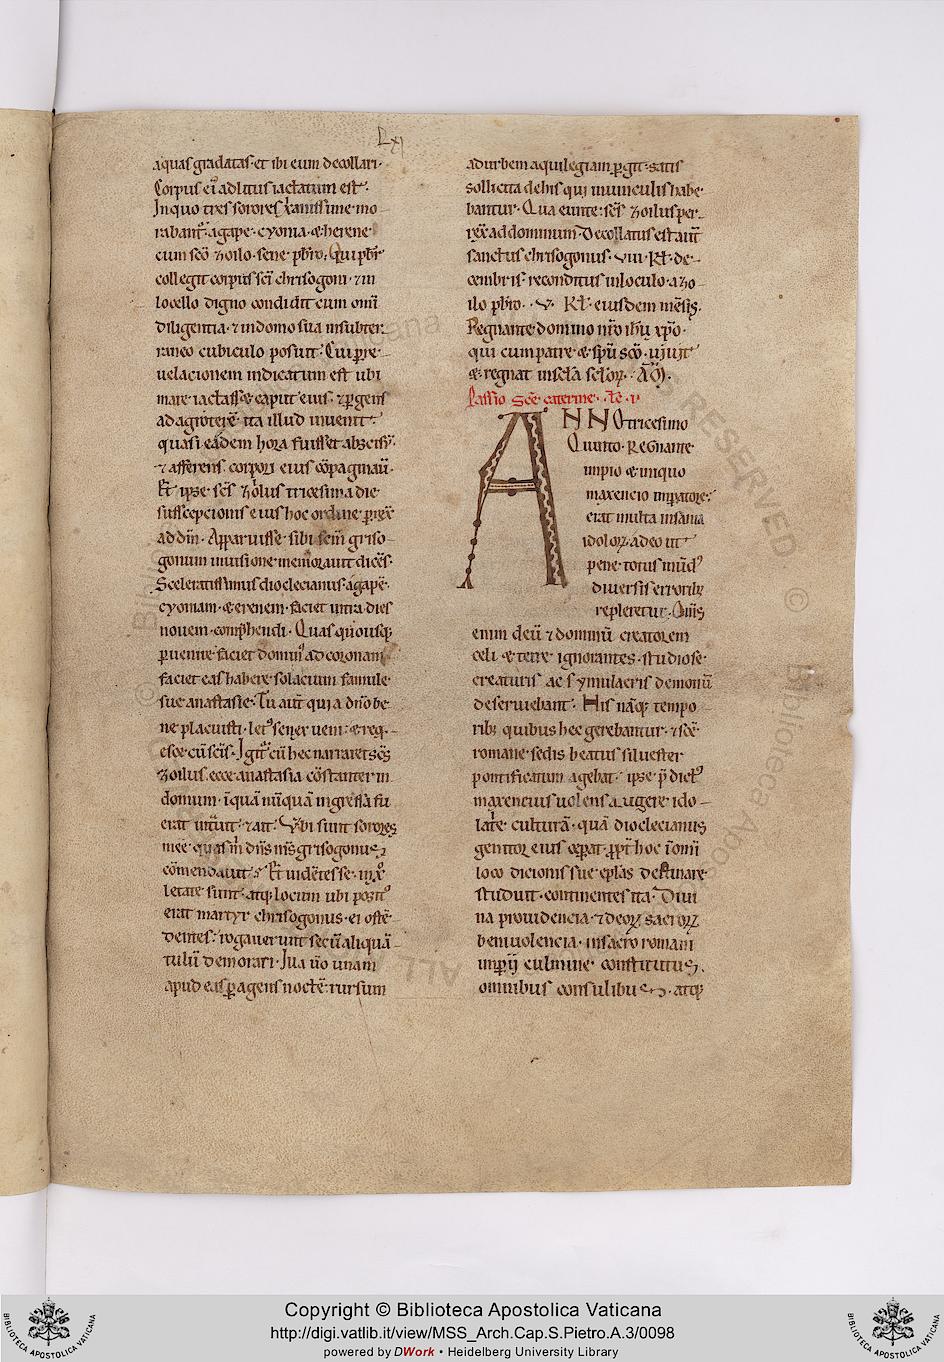 Lxi
aquas gradatas· et ibi eum decollari·
Corpus ei adlitus iactatum est·
In quo tres sorores xanissime mo-
rabant· agape· cyonia· & herene
cum sco zoilo· sene pbro· Qui pbr
collegit corpus sci chrisogoni· 7 in
locello digno condidit cum omi
diligentia· 7 indomo sua insubter-
raneo cubiculo posuit· Cui per re-
uelacionem indicatum est ubi
mare iactass& caput eius· & pergens
ita illud inuenit·
quasi eadem hora fuisset abscisu·
7 afferens corpori eius copaginau·
Et ipse scs zolus tricesima die
susscepcionis eius hoc ordine prrex
ad dnm· Apparuisse sibi scm griso-
gonum inuisione memorauit dices·
Sceleratissimus dioclecianus· agape·
cyoniam· & erenem· faciet intra dies
nouem· comphendi· Quas quousq;
peruenire faciet dominus ad coronam
faciet eas habere solacium famule
sue anastasie· Tu aut quia dno be
ne placuisti· letus senex ueni· & req-
esce cu scis· Igitur cu hec narraret scs
zoilus· ecce anastasia costanter in
domum· i qua nuqua ingressa fu
erat intuit· 7 ait· Vbi sunt sorores
mee· quas m dns ms grisogonus
comendauit· Et uidetes se·
letate sunt· atq; locum ubi posit
erat martyr chrisogonus· ei oste
dentes· rogauerunt secu aliqua-
tulu demorari· Iua uo unam
apud eas peragens nocte· rursum
ad urbem aquilegiam pergit· satis
sollicita de his qui inuinculis habe
bantur· Qua eunte· scs zoilus per-
rex ad dominum· Decollatus est aut
sanctus chrisogonus· viii· Kl· de-
cembris· reconditus inloculo· a zo-
ilo pbro· v· Kl· eiusdem mesis·
Regnante domino nro ihu xpo·
qui cum patre & spu sco· uiuit
& regnat in scla sclor· AM·
Passio Sce caterine·
ANNO tricesimo
Quinto· Regnante
impio & iniquo
maxencio impatore·
erat multa insania
idolor· adeo ut
pene totus mund
diuersis erroribz
repleretur· Omis
enim deu 7 dominu creatorem
celi & terre ignorantes· studiose
creaturis ac symulacris demonu
deseruiebant· His naq; tempo
ribz quibus hec gerebantur· 7 sce
romane sedis beatus siluester
pontificatum agebat· ipse p dict
maxencius uolens augere ido-
latre cultura· qua dioclecianus
genitor eius ceperat· ppt hoc i omi
loco dicionis sue eplas destinare
studuit· continentes ita· Diui
na prouidencia· 7 deor sacror
beniuolencia· insacro romani
imperii culmine constitutus·
omnibus consulibus· atq;
Copyright © Biblioteca Apostolica Vaticana
http://digi.vatlib.it/view/MSS_Arch.Cap.S.Pietro.A.3/0098
powered by DWork • Heidelberg University Library